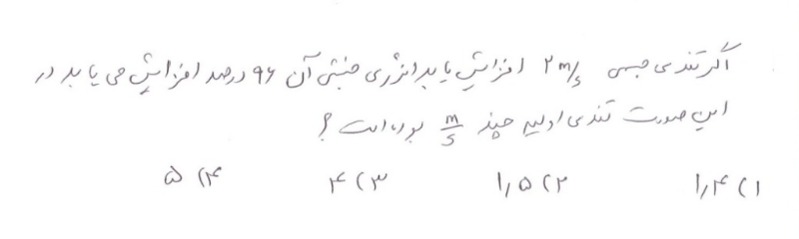 اگر تندی جسمی ۲ m/s افزایش یابد انرژی جنبشی آن ۹۶ درصد افزایش می یابد در
این صورت تندی اولیه چند m/s بوده است ؟
۱) ۱٫۴ ۲) ۱٫۵ ۳) ۴ ۴) ۵